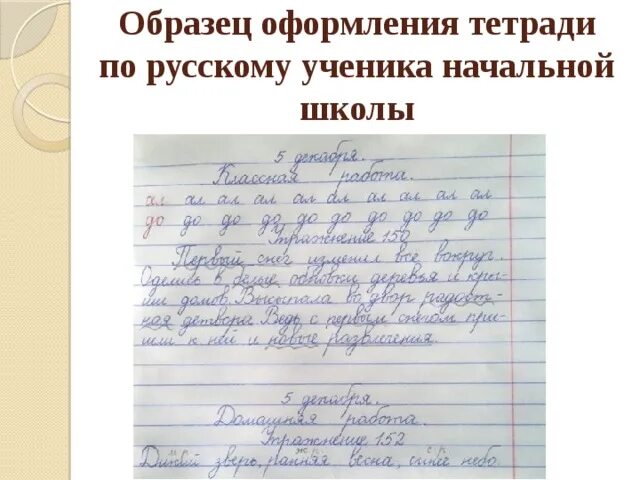 Образец оформления тетради
по русскому ученика начальной
школы
5 декабря.
Классная работа.
ал ал ал ал ал ал ал ал ал ал
до до до до до до до до до до
Упражнение 150
Первый снег изменил все вокруг.
Оделись в белые обновки деревья и кры-
ши домов. Высыпала во двор радост-
ная детвора. Ведь с первым снегом при-
шли к ней и новые развлечения.
5 декабря.
Домашняя работа.
Упражнение 152
Дикий зверь, ранняя весна, синее небо